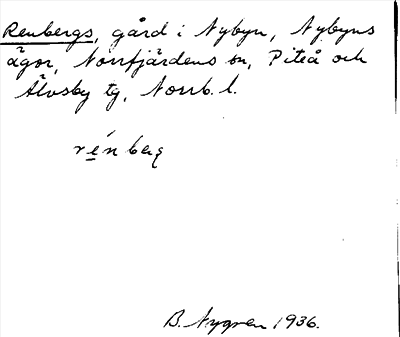 Renbergs, gård i Nybyn, Nybyns
ägor, Norrfjärdens sn, Piteå och
Älvsby tg, Norrb. l.
rénberg
B. Nygren 1936.